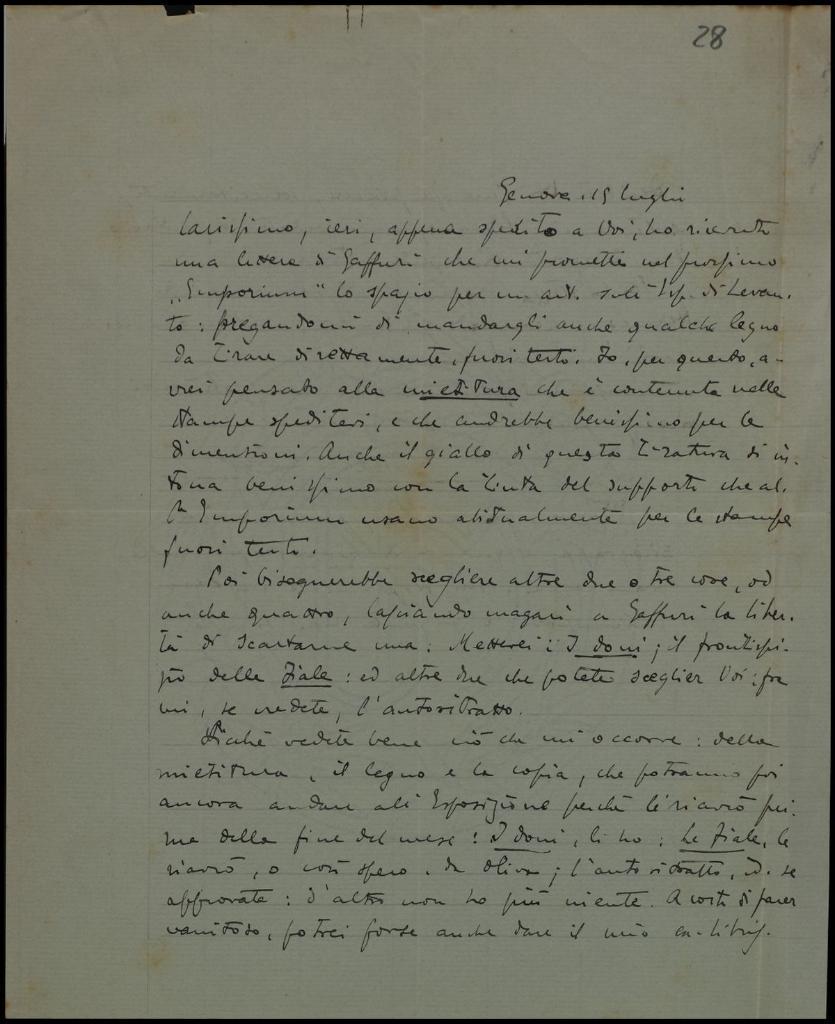 28
Genova. 15 luglio
Carissimo, ieri, appena spedito a Voi, ho ricevuto
una lettera di Gaffuri che mi promette nel prossimo
"Emporium" lo spazio per un art. sull'Esp. di Levan-
to: pregandomi di mandargli anche qualche legno
da tirare direttamente, fuori testo. Io, per questo, a-
vrei pensato alla mietitura che è contenuta nelle
stampe speditevi, e che andrebbe benissimo per le
dimensioni. Anche il giallo di questa tiratura si in-
tona benissimo con la tinta del supporto che al-
l'Emporium usano abitualmente per le stampe
fuori testo.
Poi bisognerebbe scegliere altre due o tre cose, od
anche quattro, lasciando magari a Gaffuri la liber-
tà di scartarne una. Metterei: I doni; il frontispi-
zio delle Fiale: ed altre due che potete sceglier Voi: fra
cui, se credete, l'autoritratto.
Sicché vedete bene ciò che mi occorre: della
mietitura, il legno e la copia, che potranno poi
ancora andare all'Esposizione perché li riavrò pri-
ma della fine del mese: I doni, li ho: Le Fiale, le
riavrò, o così spero, da Oliva; l'autoritratto, id. se
approvate: d'altro non ho più niente. A costo di parer
vanitoso, potrei forse anche dare il mio ex-libris.